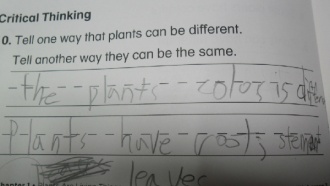 Critical Thinking
0. Tell one way that plants can be different.
Tell another way they can be the same.
the plants color is different
Plants have root, stem and
leaves